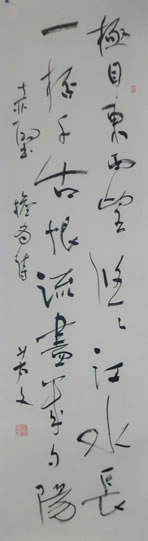 極目東西望悠〻江水長
一杯千古恨流盡幾夕陽
赤壁